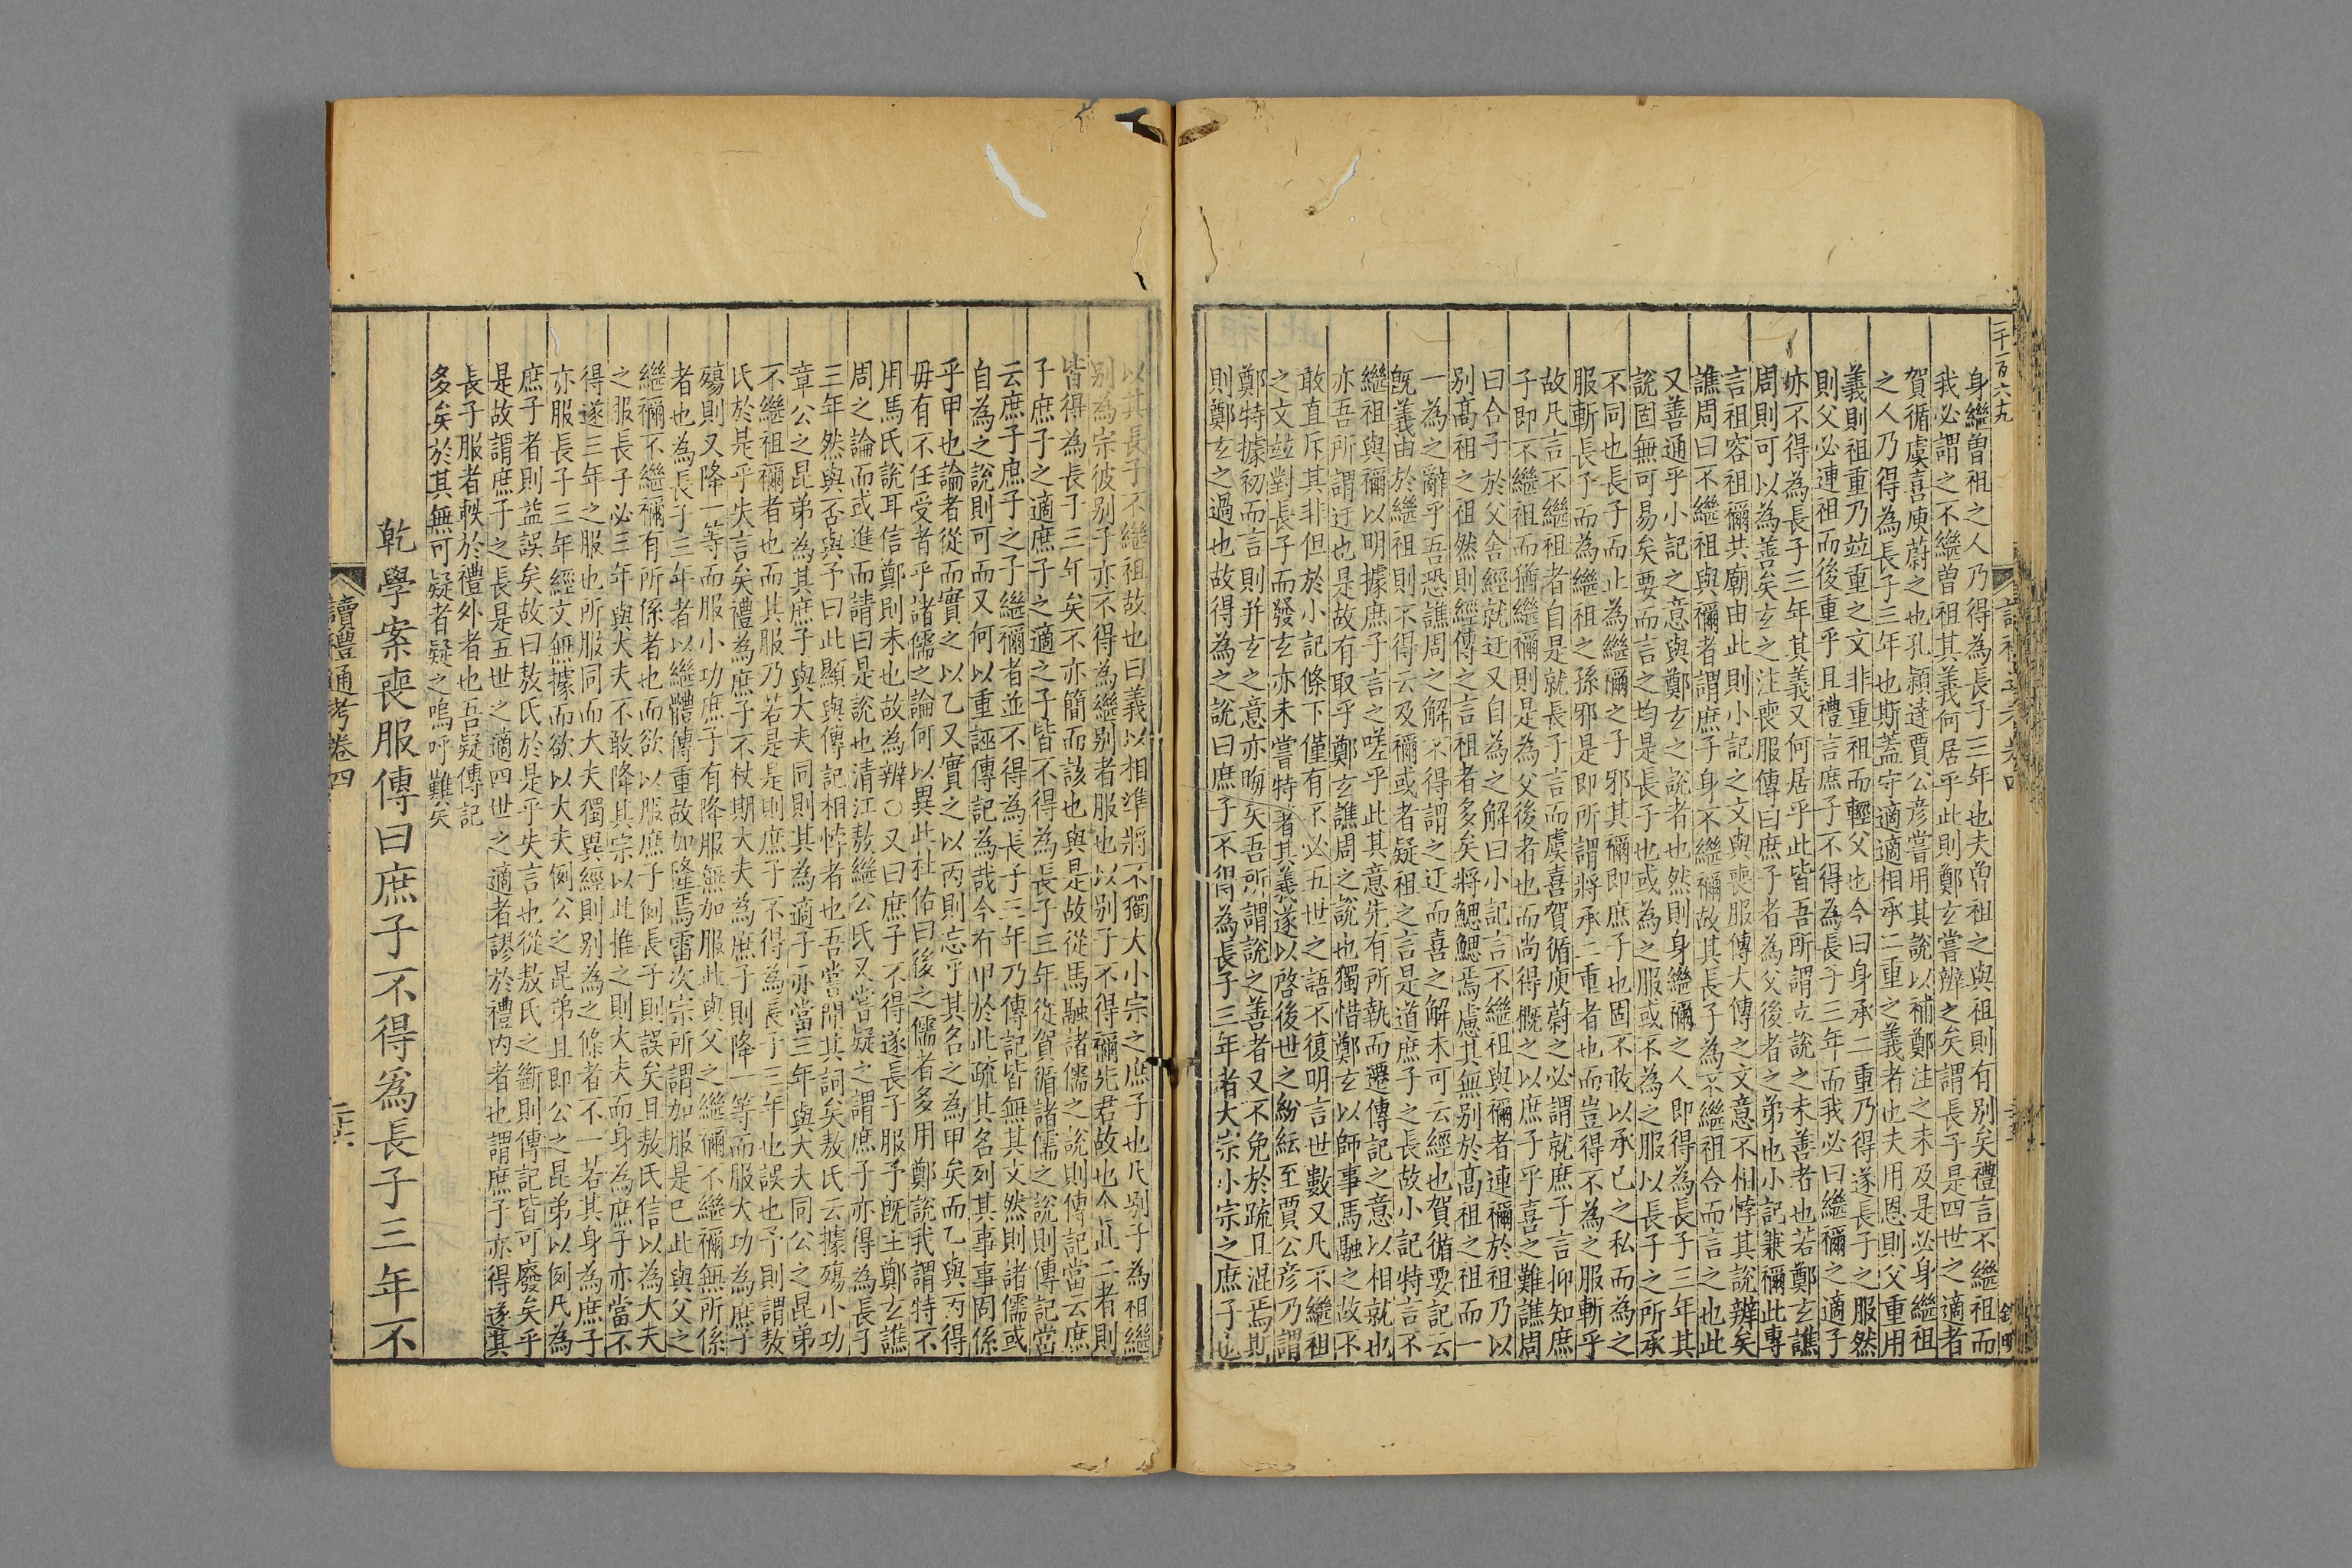 二千一百六九
身繼曾祖之人乃得為長子三年也夫曾祖之與祖則有別矣禮言不繼祖而
我必謂之不繼曾祖其義何居乎此則鄭玄嘗辨之矣謂長子是四世之適者
賀循虞喜庾蔚之也孔潁達賈公彦嘗用其說以補鄭注之未及是必身繼祖
之人乃得為長子三年也斯蓋守適適相承二重之義者也夫用恩則父重用
義則祖重乃竝重之文非重祖而輕父也今曰身承二重乃得遂長子之服然
則父必連祖而後重乎且禮言庶子不得為長子三年而我必曰繼禰之適子
亦不得為長子三年其義又何居乎此皆吾所謂立說之未善者也若鄭玄譙
周則可以為善矣玄之注喪服傳曰庶子者為父後者之弟也小記兼禰此專
言祖容祖禰共廟由此則小記之文與喪服傳大傳之文意不相悖其說辨矣
譙周曰不繼祖與禰者謂庶子身不繼禰故其長子為不繼祖合而言之也此
又善通乎小記之意與鄭玄之說者也然則身繼禰之人即得為長子三年其
說固無可易矣要而言之均是長子也或為之服或不為之服以長子之所承
不同也長子而止為繼禰之子邪其禰即庶子也固不敢以承己之私而為之
服斬長子而為繼祖之孫邪是即所謂將承二重者也而豈得不為之服斬乎
故凡言不繼祖者自是就長子言而虞喜賀循庾蔚之必謂就庶子言仰知庶
子即不繼祖而猶繼禰則是為父後者也而尚得概之以庶子乎喜之難譙周
曰合子於父舍經就迂又自為之解曰小記言不繼祖與禰者連禰於祖乃以
別髙祖之祖然則經傳之言祖者多矣將鰓鰓焉慮其無別於髙祖之祖而一
一為之辭乎吾恐譙周之解不得謂之迂而喜之解未可云經也賀循要記云
旣義由於繼祖則不得云及禰或者疑祖之言是道庶子之長故小記特言不
繼祖與禰以明據庶子言之嗟乎此其意先有所執而遷傳記之意以相就也
亦吾所謂迂也是故有取乎鄭玄譙周之說也獨惜鄭玄以師事馬融之故不
敢直斥其非但於小記條下僅有不必五世之語不復明言世數又凡不繼祖
之文竝對長子而發玄亦未嘗特著其義遂以啓後世之紛紜至賈公彦乃謂
鄭特據初而言則幷玄之意亦晦矣吾所謂說之善者又不免於疏且混焉斯
則鄭玄之過也故得為之說曰庶子不得為長子三年者大宗小宗之庶子也
以其長子不繼祖故也曰義以相準將不獨大小宗之庶子也凡別子為祖繼
別為宗彼別子亦不得為繼別者服也以別子不得禰先君故也今此二者則
皆得為長子三年矣不亦簡而該也與是故從馬融諸儒之說則傳記當云庶
子庶子之適庶子之適之子皆不得為長子三年從賀循諸儒之說則傳記當
云庶子庶子之子繼禰者並不得為長子三年乃傳記皆無其文然則諸儒或
自為之說則可而又何以重誣傳記為哉今有甲於此疏其名列其事事固係
乎甲也論者從而實之以乙又實之以丙則忘乎其名之為甲矣而乙與丙得
毋有不任受者乎諸儒之論何以異此杜佑曰後之儒者多用鄭說我謂特不
用馬氏說耳信鄭則未也故為辨○又曰庶子不得遂長子服予旣主鄭玄譙
周之論而或進而請曰是說也清江敖繼公氏又嘗疑之謂庶子亦得為長子
三年然與否與予曰此顯與傳記相悖者也吾嘗閒其詞矣敖氏云據殤小功
章公之昆弟為其庶子與大夫同則其為適子亦當三年與大夫同公之昆弟
不繼祖禰者也而其服乃若是是則庶子不得為長子三年也誤也予則謂敖
氏於是乎失言矣禮為庶子不杖期大夫為庶子則降一等而服大功為庶子
殤則又降一等而服小功庶子有降服無加服此與父之繼禰不繼禰無所係
者也為長子三年者以繼體傳重故加隆焉雷次宗所謂加服是已此與父之
繼禰不繼禰有所係者也而欲以服庶子例長子則誤矣且敖氏信以為大夫
之服長子必三年與大夫不敢降其宗以此推之則大夫而身為庶子亦當不
得遂三年之服也所服同而大夫獨異經則別為之條者不一若其身為庶子
亦服長子三年經文無據而欲以大夫例公之昆弟且即公之昆弟以例凡為
庶子者則益誤矣故曰敖氏於是乎失言也從敖氏之斷則傳記皆可廢矣乎
是故謂庶子之長是五世之適四世之適者謬於禮內者也謂庶子亦得遂其
長子服者軼於禮外者也吾疑傳記
多矣於其無可疑者疑之嗚呼難矣
乾學案喪服傳曰庶子不得爲長子三年不
讀禮通考卷四
二十六